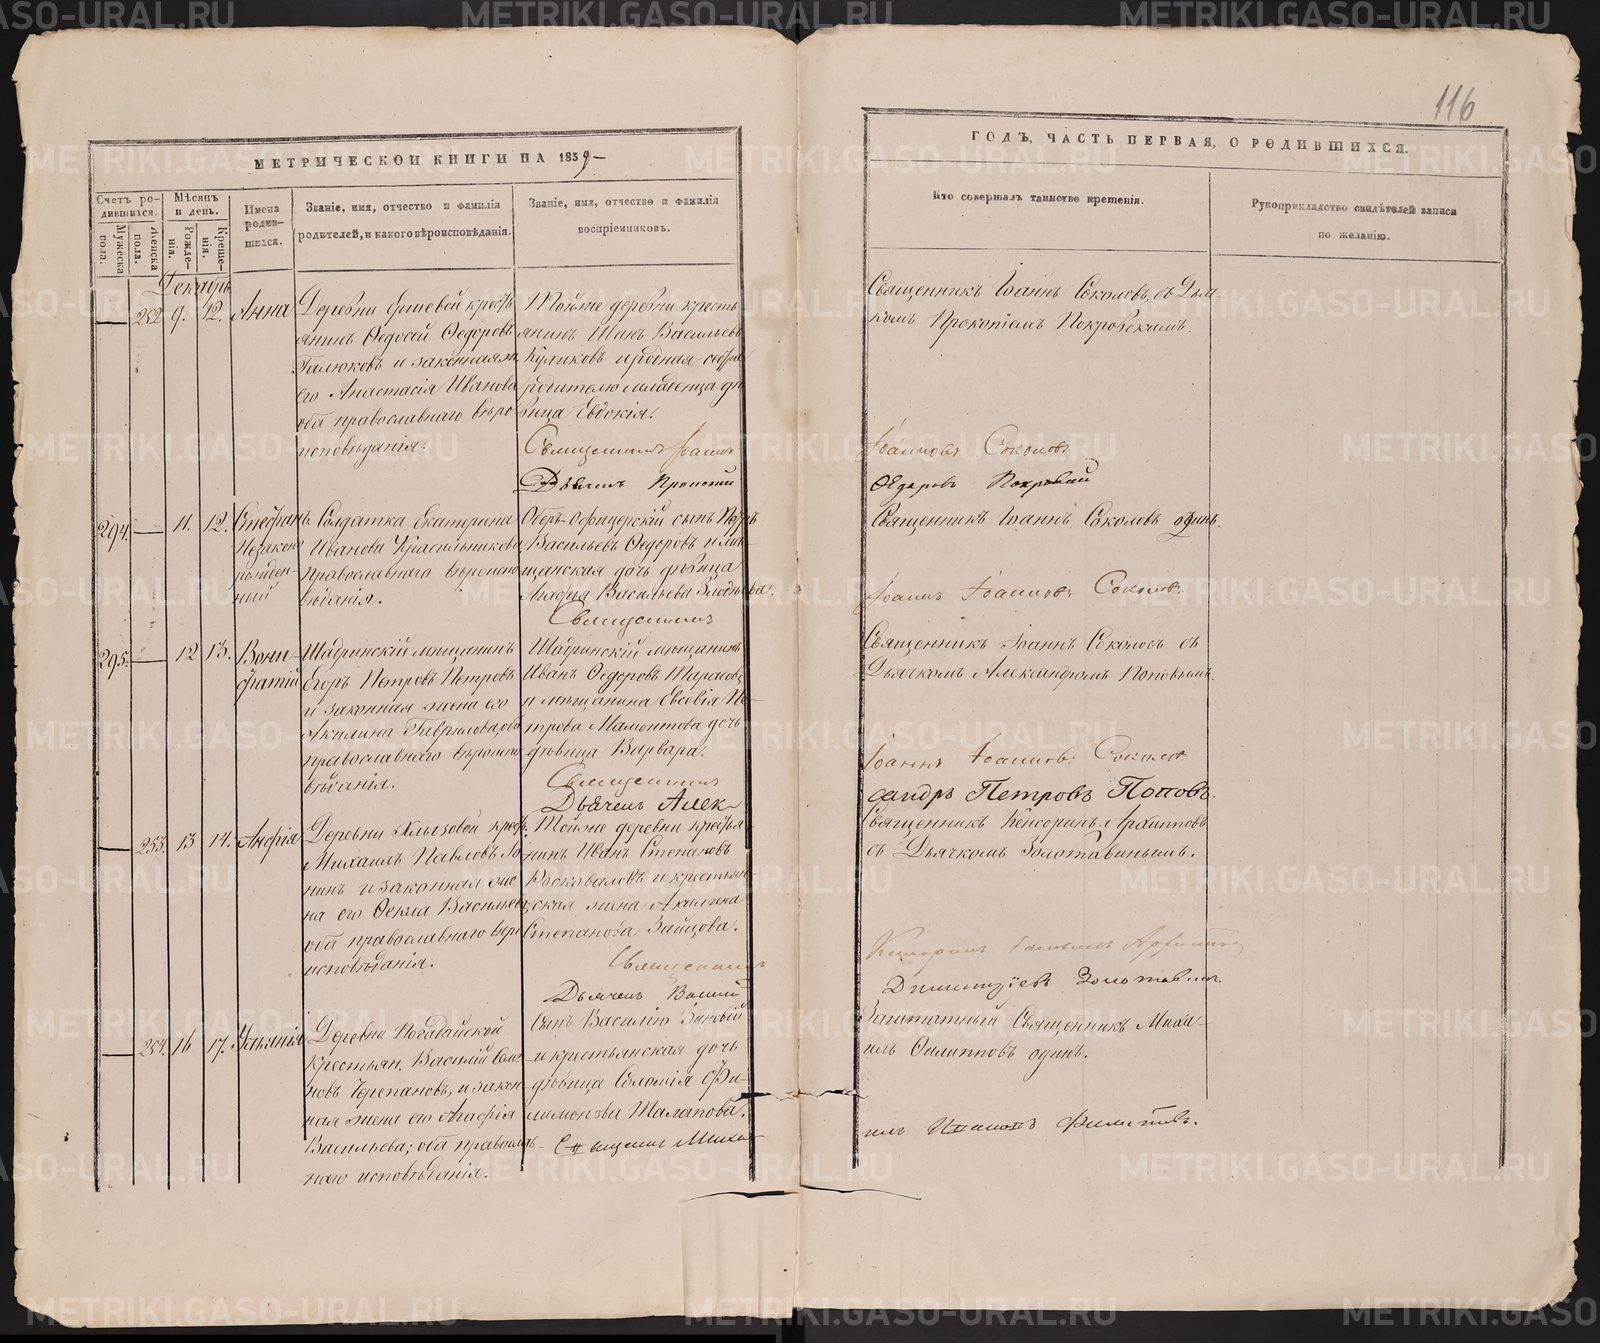 116
МЕТРИЧЕСКОЙ КНИГИ НА 1859
ГОДЪ, ЧАСТЬ ПЕРВАЯ, О РОДИВШИХСЯ.
Счетъ родившихся.
Мужеска пола.
Женска пола.
Мѣсяцъ и день.
Рожденія.
Крещенія.
Имена родившихся.
Званіе, имя, отчество и фамилія
родителей, и какого вѣроисповѣданія.
Званіе, имя, отчество и фамилія
воспріемниковъ.
Кто совершалъ таинство крещенія.
Рукоприкладство свидѣтелей записи
по желанію.
Декабрь
252 9. 12. Анна
Деревни Ершевой кресть
янинъ Ѳедосей Ѳедоровъ
Галюковъ и законная ж
его Анастасія Иванова
оба православнаго вѣро
исповѣданія.
Тойже деревни кресть
янинъ Иванъ Васильевъ
Куликовъ и родная сестра
родителю младенца дѣ
вица Евдокія.
Священникъ Іоаннъ
Дьячекъ Прокопій
Священникъ Іоаннъ Соколовъ, съ Дья-
комъ Прокопіемъ Покровскимъ.
Іоанновъ Соколовъ
Ѳедоровъ Покровскій
294. 11. 12. Стефанъ
Незакон
рожден-
ный
Солдатка Екатерина
Иванова Красильникова
православнаго вѣроиспо
вѣданія.
Оберъ-Офицерскій сынъ Петръ
Васильевъ Ѳедоровъ и мѣ
щанская дочь дѣвица
Агафья Васильева
Священникъ
Священникъ Іоаннъ Соколовъ одинъ.
Іоаннъ Іоанновъ Соколовъ.
295. 12 13. Вони-
фатій
Шадринскій мѣщанинъ
Егоръ Петровъ Петровъ
и законная жена его
Акилина Гаврилова оба
православнаго вѣроиспо
вѣданія.
Шадринскій мѣщанинъ
Иванъ Ѳедоровъ
и мѣщанина Евсевія Пе
трова Мамонтова дочь
дѣвица Варвара.
Священникъ
Дьячекъ Алек-
Священникъ Іоаннъ Соколовъ съ
Дьячкомъ Александромъ Поповымъ.
Іоаннъ Іоанновъ Соколовъ
сандръ Петровъ Поповъ.
253. 13 14. Анфіса
Деревни Хлызовой крест.
Михаилъ Павловъ
нинъ и законная же
на его Ѳекла Васильева
оба православнаго вѣро
исповѣданія.
Тойже деревни крестья
нинъ Иванъ Степановъ
и крестьян
ская жена Акилина
Степанова Зайцова.
Священникъ
Дьячекъ Василій
Священникъ Кенсоринъ Архипповъ
съ Дьячкомъ Золотавинымъ.
Кенсоринъ Архипповъ
Димитріевъ Золотавинъ.
254. 16 17. Уліанія
Деревни Погадайской
Крестьян. Василій Сем
новъ Черепановъ, и закон-
ная жена его Агафія
Васильева; оба православ-
наго исповѣданія.
сынъ Василію Зиновій
и крестьянская дочь
дѣвица Соломія Фи-
лимонова Талапова.
Священникъ Миха-
Заштатный Священникъ Миха-
илъ Филипповъ одинъ.
илъ Ивановъ Филиповъ.
METRIKI.GASO-URAL.RU